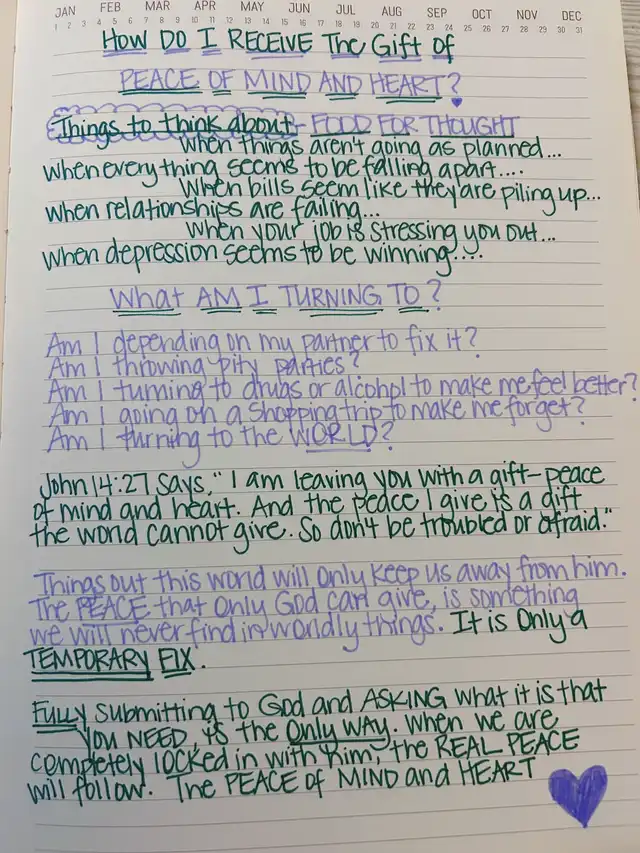 JAN FEB MAR APR MAY JUN JUL AUG SEP OCT NOV DEC
1 2 3 4 5 6 7 8 9 10 11 12 13 14 15 16 17 18 19 20 21 22 23 24 25 26 27 28 29 30 31
HOW DO I RECEIVE The Gift Of
PEACE OF MIND AND HEART?
Things to think about- FOOD FOR THOUGHT
when things aren't going as planned...
when everything seems to be falling apart....
When bills seem like they are piling up...
when relationships are failing...
when your job is stressing you out...
when depression seems to be winning....
What AM I TURNING TO?
Am I depending on my partner to fix it?
Am I throwing pity parties?
Am I turning to drugs or alcohol to make me feel better?
Am I going on a shopping trip to make me forget?
Am I turning to the WORLD?
John 14:27 Says, "I am leaving you with a gift-peace
of mind and heart. And the peace I give is a gift
the world cannot give. So don't be troubled or afraid."
Things out this world will only keep us away from him.
The PEACE that only God can give, is something
we will never find in worldly things. It is Only a
TEMPORARY FIX.
FULLY submitting to God and ASKING what it is that
YOU NEED, is the Only WAY. When we are
completely locked in with him, the REAL PEACE
will follow. The PEACE of MIND and HEART